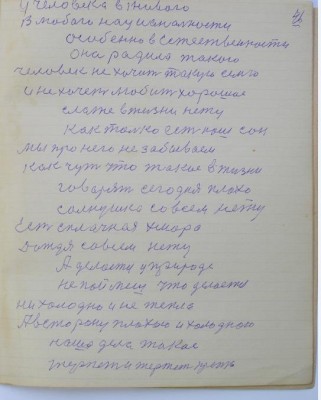 У человека в живого
В любого национальности
особенно в естественности
Она радила такого
человек не хочит такую село
и не хочет любит хорошая
слаже в жизни нету
Как только ест наш сон
мы про него не забываем
как чут что такое в жизни
говорят сегодня плохо
солнушка совсем нету
Ест сплачная хмара
Дождя совсем нету
А делоеть у природе
не поймеш что делоеть
ни холодно и не тепло
А всторону плохою и холодною
наша дела такая
терпет и терпет